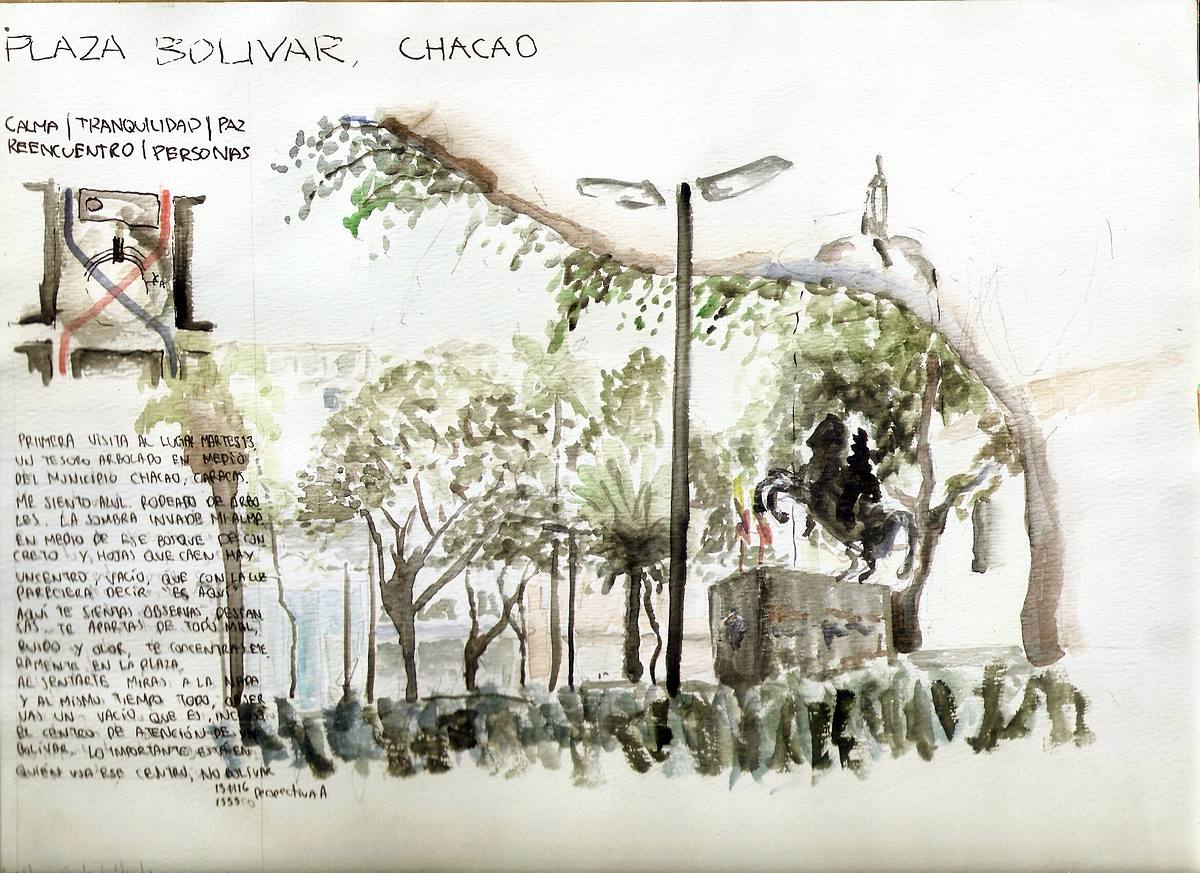 PLAZA BOLIVAR, CHACAO
CALMA | TRANQUILIDAD | PAZ
REENCUENTRO | PERSONAS
A
PRIMERA VISITA AL LUGAR MARTES 13,
UN TESORO ARBOLADO EN MEDIO
DEL MUNICIPIO CHACAO, CARACAS.
ME SIENTO AZUL. RODEADO DE ARBO
LES. LA SOMBRA INVADE MI ALMA
EN MEDIO DE ESE BOSQUE DE CON
CRETO Y HOJAS QUE CAEN HAY
UN CENTRO, VACIO, QUE CON LA LUZ
PARECIERA DECIR "ES AQUI"
AQUI TE SIENTAS OBSERVAS, DESCAN
SAS. TE APARTAS DE TODO MAL,
RUIDO Y OLOR, TE CONCENTRAS ETE
RAMENTE EN LA PLAZA.
AL SENTARTE MIRAS A LA NADA
Y AL MISMO TIEMPO TODO, OBSER
VAS UN VACIO QUE ES, INCLUSO
EL CENTRO DE ATENCIÓN DE UN
BOLIVAR, LO IMPORTANTE ESTA EN
QUIEN USA ESE CENTRO, NO BOLIVAR
Perspectiva A